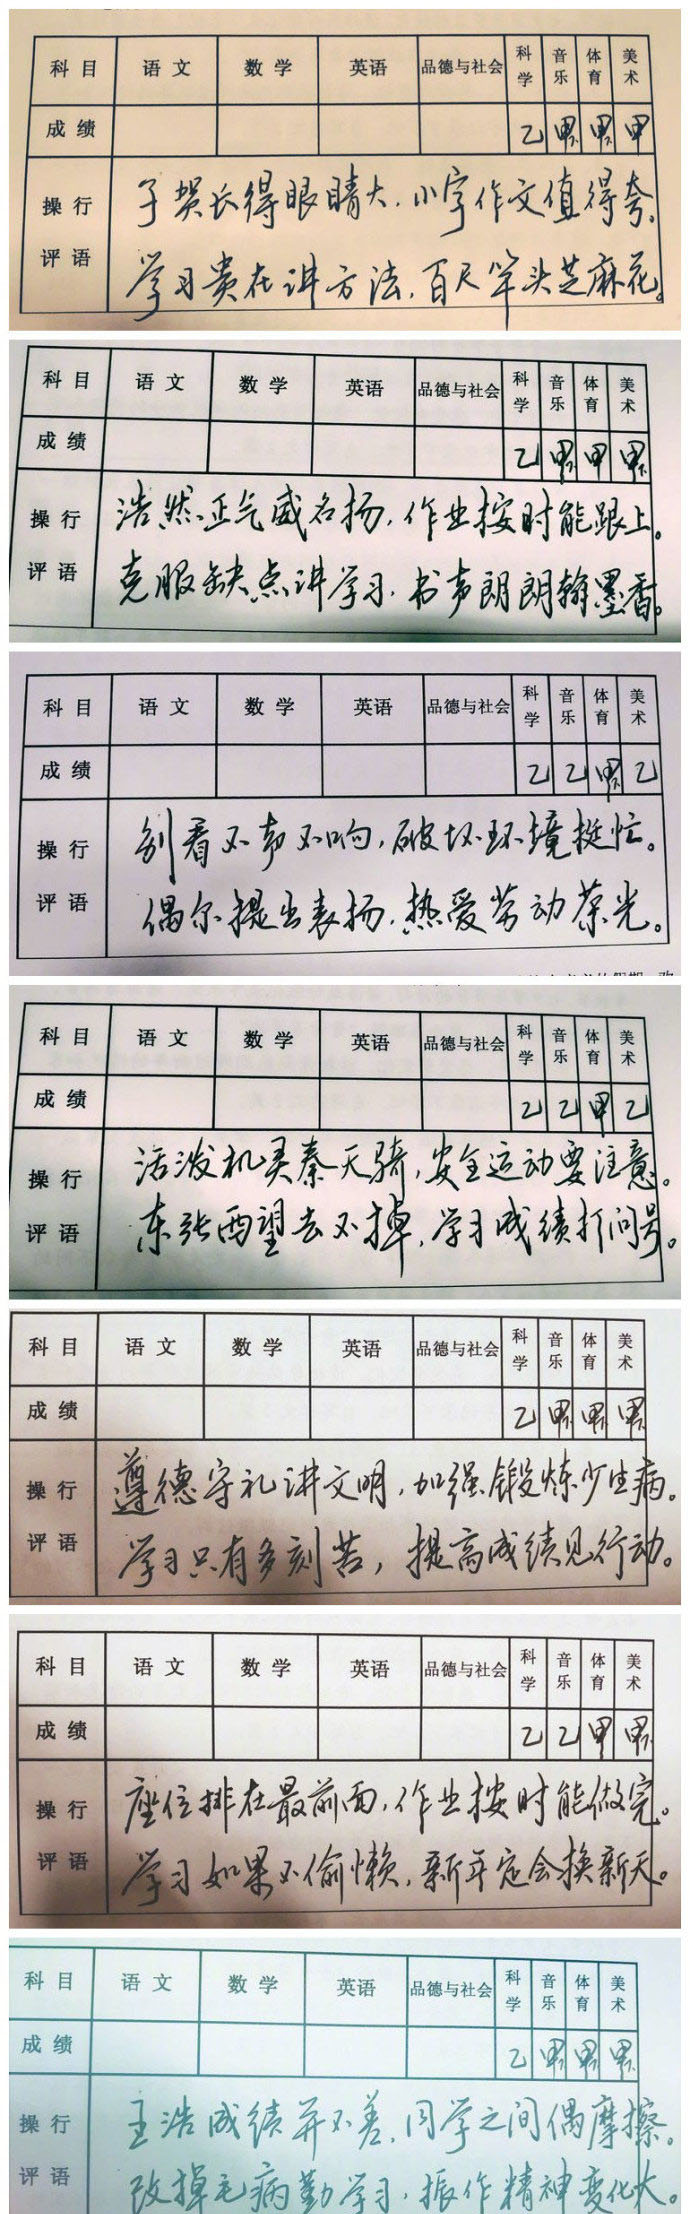 科目 语文 数学 英语 品德与社会 科学 音乐 体育 美术
成绩 乙 甲下 甲下 甲
操行评语
子贺长得眼睛大，小字作文值得夸，
学习贵在讲方法，百尺竿头芝麻花。
科目 语文 数学 英语 品德与社会 科学 音乐 体育 美术
成绩 乙 甲下 甲 甲下
操行评语
浩然正气威名扬，作业按时能跟上。
克服缺点讲学习，书声朗朗翰墨香。
科目 语文 数学 英语 品德与社会 科学 音乐 体育 美术
成绩 乙 乙 甲下 乙
操行评语
别看不声不响，破坏环境挺忙。
偶尔提出表扬，热爱劳动荣光。
科目 语文 数学 英语 品德与社会 科学 音乐 体育 美术
成绩 乙 乙 甲 乙
操行评语
活泼机灵秦天骑，安全运动要注意。
东张西望去不掉，学习成绩打问号。
科目 语文 数学 英语 品德与社会 科学 音乐 体育 美术
成绩 乙 甲下 甲下 甲下
操行评语
遵德守礼讲文明，加强锻炼少生病。
学习只有多刻苦，提高成绩见行动。
科目 语文 数学 英语 品德与社会 科学 音乐 体育 美术
成绩 乙 乙 甲 甲下
操行评语
座位排在最前面，作业按时能做完。
学习如果不偷懒，新年定会换新天。
科目 语文 数学 英语 品德与社会 科学 音乐 体育 美术
成绩 乙 甲下 甲下 甲下
操行评语
王浩成绩并不差，同学之间偶摩擦。
改掉毛病勤学习，振作精神变化大。